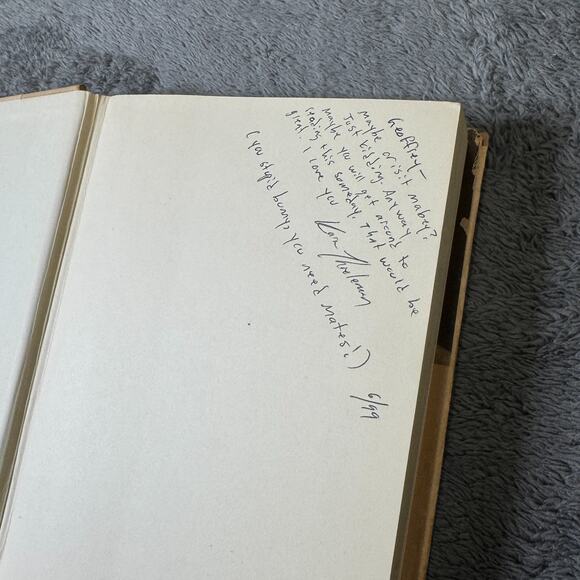 Geoffrey-
Maybe or is it mabey?
Just kidding. Anyway
maybe you will get around to
reading this someday. That would be
great. I love you
(you stupid bunny, you need mates!)
6/99